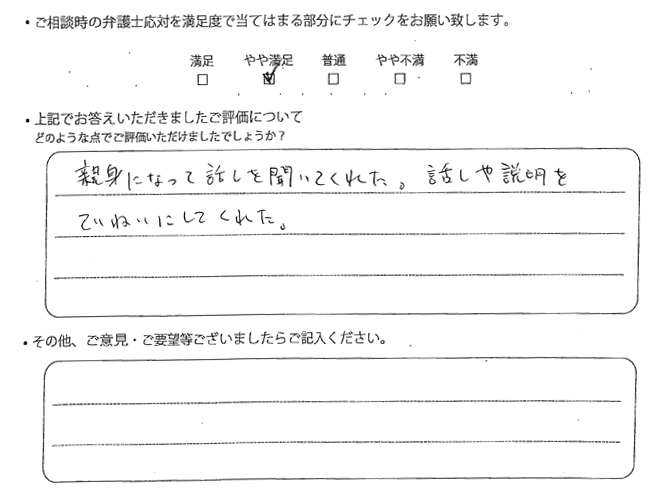 ・ご相談時の弁護士応対を満足度で当てはまる部分にチェックをお願い致します。
満足 やや満足 普通 やや不満 不満
□ ☑ □ □ □
・上記でお答えいただきましたご評価について
どのような点でご評価いただけましたでしょうか？
親身になって話しを聞いてくれた。話しや説明を
ていねいにしてくれた。
・その他、ご意見・ご要望等ございましたらご記入ください。